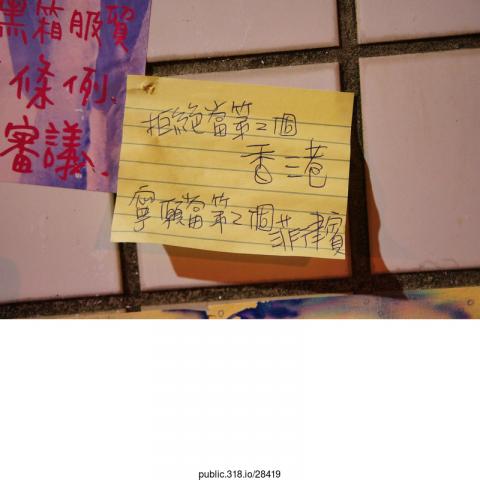 黑箱服貿
條例.
審議.
拒絕當第二個
香港
寧願當第二個
菲律賓
public.318.io/28419